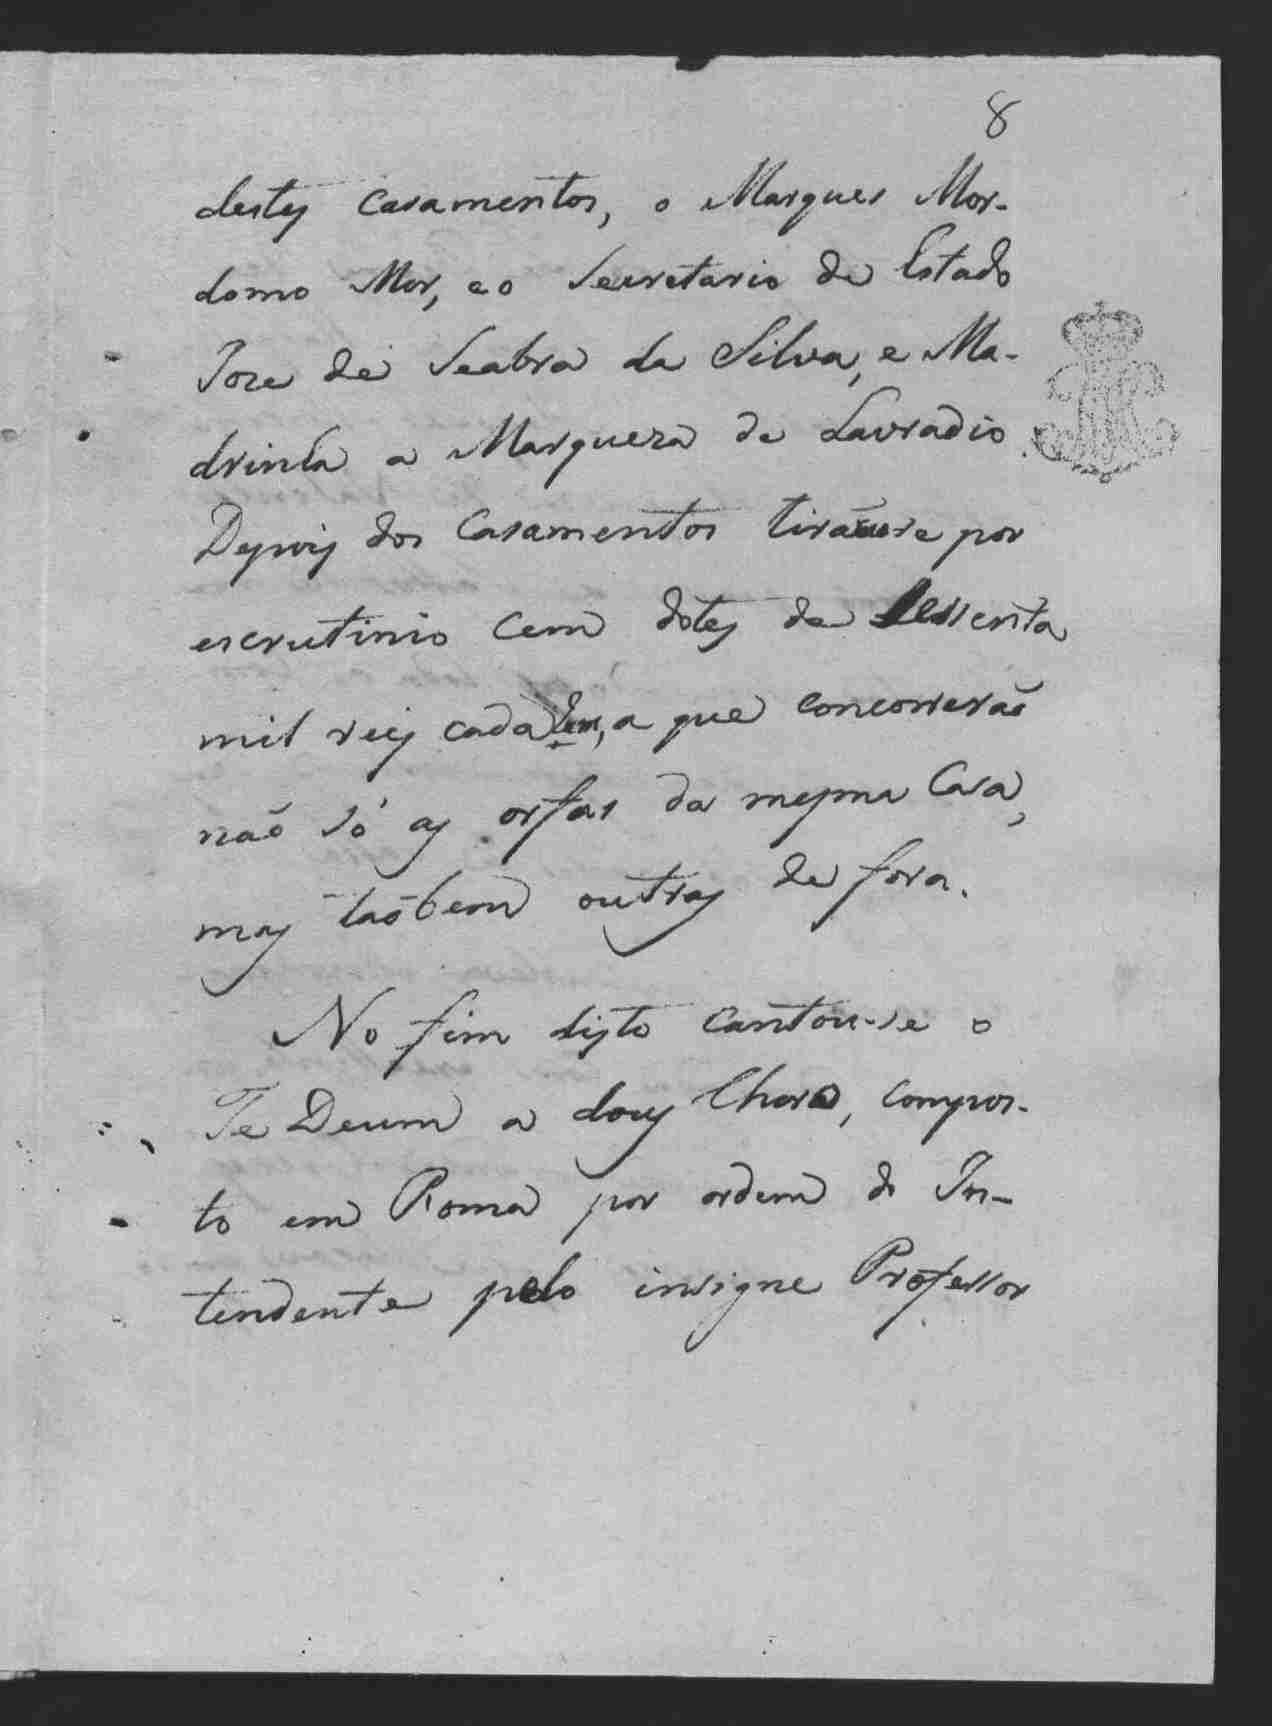 8
destes casamentos, o Marques Mor-
domo Mor, e o Secretario de Estado
Joze de Seabra da Silva, e Ma-
drinha a Marqueza de Lavradio.
Depois dos Casamentos tirãose por
escrutinio cem dotes de sessenta
mil reis cada hum, a que concorrerão
não só as orfas da mesma Casa,
mas taõbem outras de fora.
No fim disto cantou-se o
Te Deum a dous Choros, compos-
to em Roma por ordem do In-
tendente pelo insigne Professor